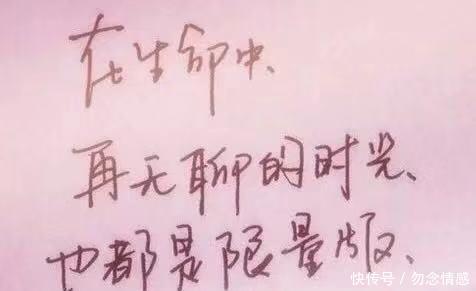 在生命中、
再无聊的时光、
也都是限量版、
快传号 / 勿念情感